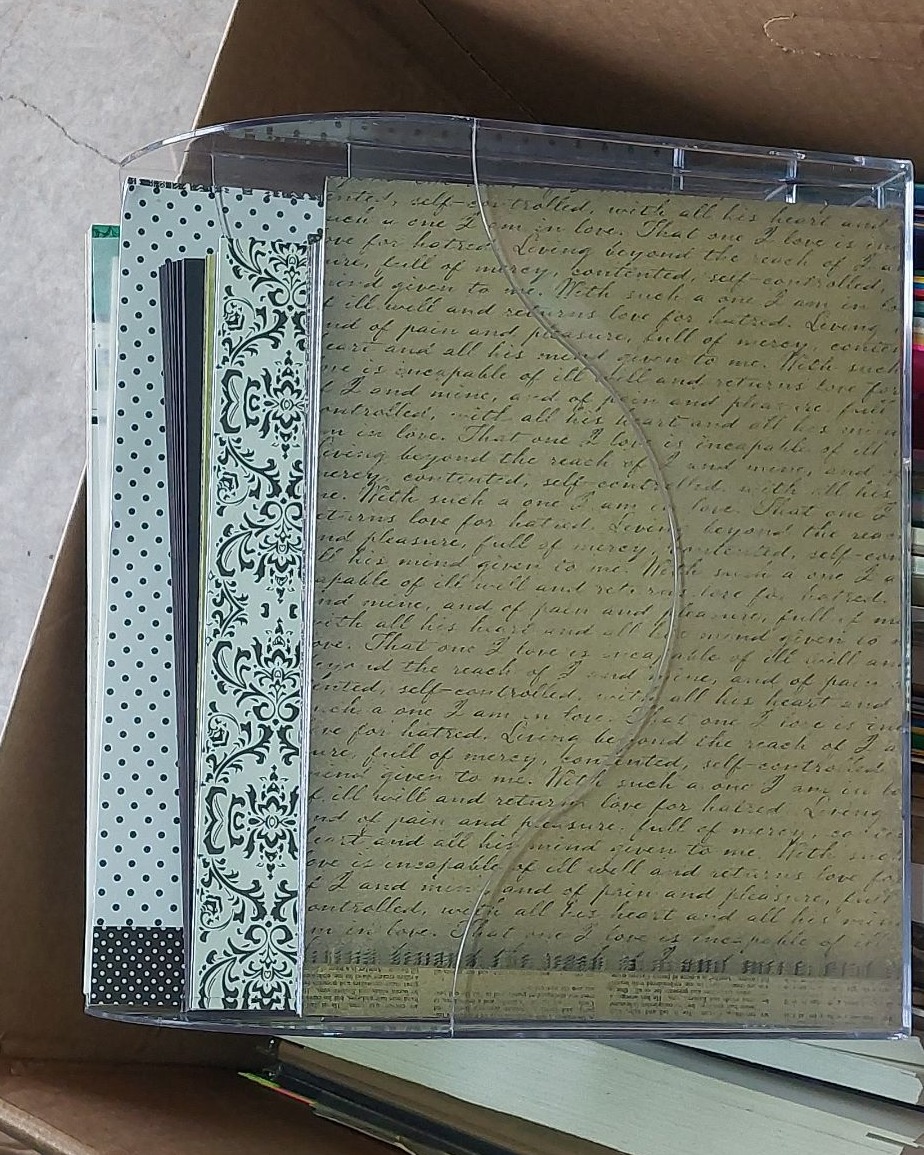 nted, self-controlled, with all his heart and
such a one I am in love. That one I love is in
ove for hatred. Living beyond the reach of I a
ure, full of mercy, contented, self-controlled
mind given to me. With such a one I am in lo
f ill will and returns love for hatred. Living
nd of pain and pleasure, full of mercy, conten
eart and all his mind given to me. With such
ve is incapable of ill will and returns love for
f I and mine, and of pain and pleasure, full
ontrolled, with all his heart and all his mind
m in love. That one I love is incapable of ill
iving beyond the reach of I and mine, and
ercy, contented, self-controlled, with all his
e. With such a one I am in love. That one I
eturns love for hatred. Living beyond the reac
nd pleasure, full of mercy, contented, self-con
ll his mind given to me. With such a one I a
apable of ill will and returns love for hatred.
nd mine, and of pain and pleasure, full of m
ith all his heart and all his mind given to
e. That one I love is incapable of ill will an
eyond the reach of I and mine, and of pain
ented, self-controlled, with all his heart and
uch a one I am in love. That one I love is inc
ve for hatred. Living beyond the reach of I a
ure, full of mercy, contented, self-controlled
mind given to me. With such a one I am in lo
f ill will and returns love for hatred. Living
nd of pain and pleasure, full of mercy, conten
eart and all his mind given to me. With such
ove is incapable of ill will and returns love fo
f I and mine, and of pain and pleasure, full
ontrolled, with all his heart and all his mind
m in love. That one I love is incapable of ill